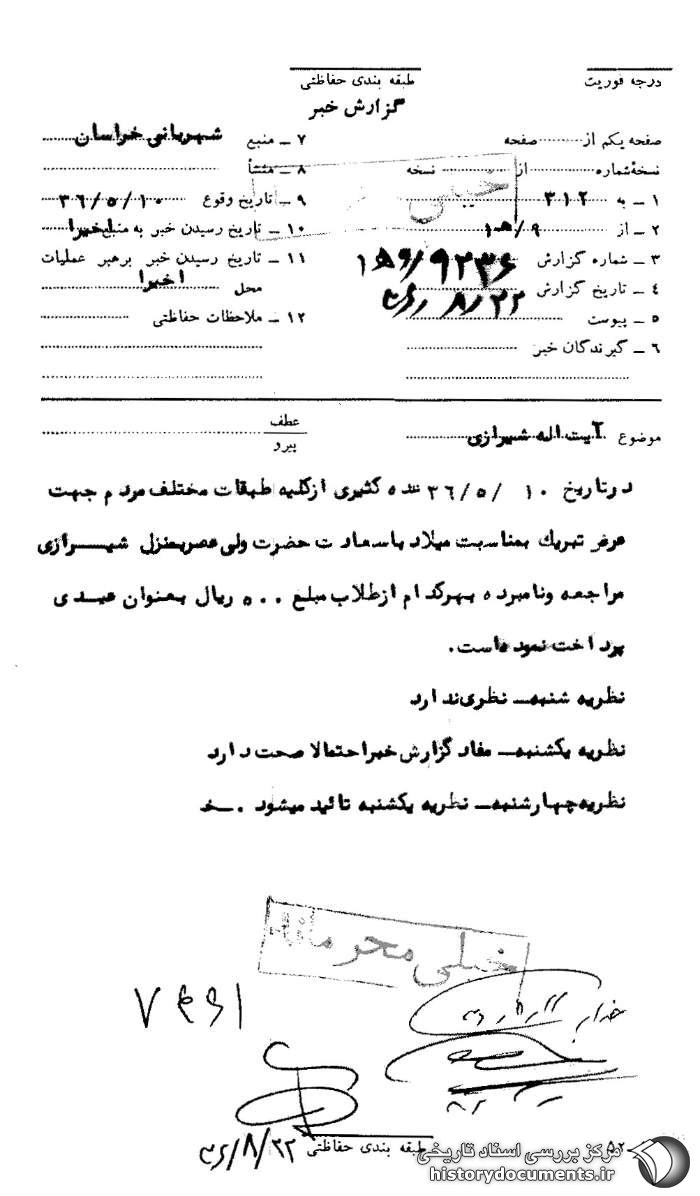 درجه فوریت
طبقه بندی حفاظتی
گزارش خبر
صفحه یکم از صفحه
نسخهٔ شماره از نسخه
۱ ــ به ۳۱۲
۲ ــ از ۹/ﻫ۱
۳ ــ شماره گزارش ۹۲۳۶/ﻫ۱۵
۴ ــ تاریخ گزارش ۳۶/۸/۲۲
۵ ــ پیوست
۶ ــ گیرندگان خبر
۷ ــ منبع شهربانی خراسان
۸ ــ منشأ
۹ ــ تاریخ وقوع ۳۶/۵/۱۰
۱۰ ــ تاریخ رسیدن خبر به منبع اخیرا
۱۱ ــ تاریخ رسیدن خبر برهبر عملیات
محل اخیرا
۱۲ ــ ملاحظات حفاظتی
خیلی
موضوع آیت اله شیرازی
عطف
پیرو
درتاریخ ۳۶/۵/۱۰ عده کثیری ازکلیه طبقات مختلف مردم جهت
عرض تبریک بمناسبت میلاد باسعادت حضرت ولی عصربمنزل شیرازی
مراجعه ونامبرده بهرکدام ازطلاب مبلغ ۵۰۰ ریال بعنوان عیدی
پرداخت نموده‌است.
نظریه شنبه‌ــ نظری‌ندارد
نظریه یکشنبه‌ــ مفاد گزارش خبراحتمالا صحت دارد
نظریه‌چهارشنبه‌ــ نظریه یکشنبه تائید میشود . ــخ
خیلی محرمانه
۳۶/۸/۲۲
طبقه بندی حفاظتی
۵۲
مرکز بررسی اسناد تاریخی
historydocuments.ir